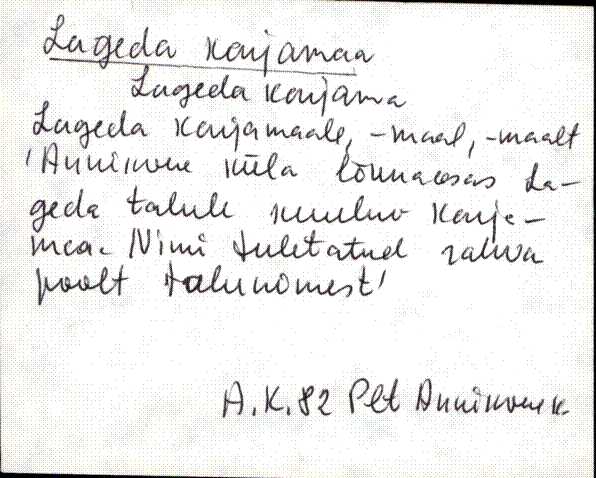 Lageda karjamaa
Lageda karjama
Lageda karjamaale, -maal, -maalt
'Annikvere küla lõunaosas La-
geda talule kuuluv karja-
maa. Nimi tuletatud rahva
poolt talunimest'
A.K. 82 Plt Annikvere k.